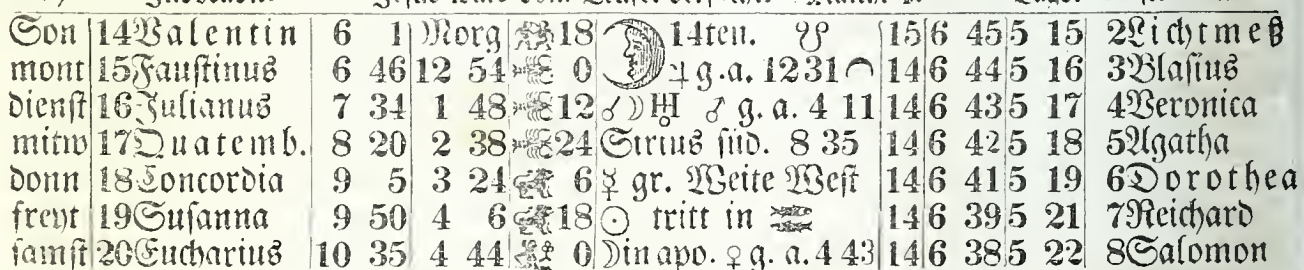 Son 14 Valentin 6 1 Morg 18 14ten. ☋ 15 6 45 5 15 2 Lichtmeß
mont 15 Faustinus 6 46 12 54 0 ♃ g. a. 12 31 14 6 44 5 16 3 Blasius
dienst 16 Julianus 7 34 1 48 12 ☌ ☽ ♅ ♂ g. a. 4 11 14 6 43 5 17 4 Veronica
mitw 17 Quatemb. 8 20 2 38 24 Sirius süd. 8 35 14 6 42 5 18 5 Agatha
donn 18 Concordia 9 5 3 24 6 ☿ gr. Weite West 14 6 41 5 19 6 Dorothea
freyt 19 Susanna 9 50 4 6 18 ☉ tritt in ♓ 14 6 39 5 21 7 Reichard
samst 20 Eucharius 10 35 4 44 0 ☽ in apo. ♀ g. a. 4 43 14 6 38 5 22 8 Salomon